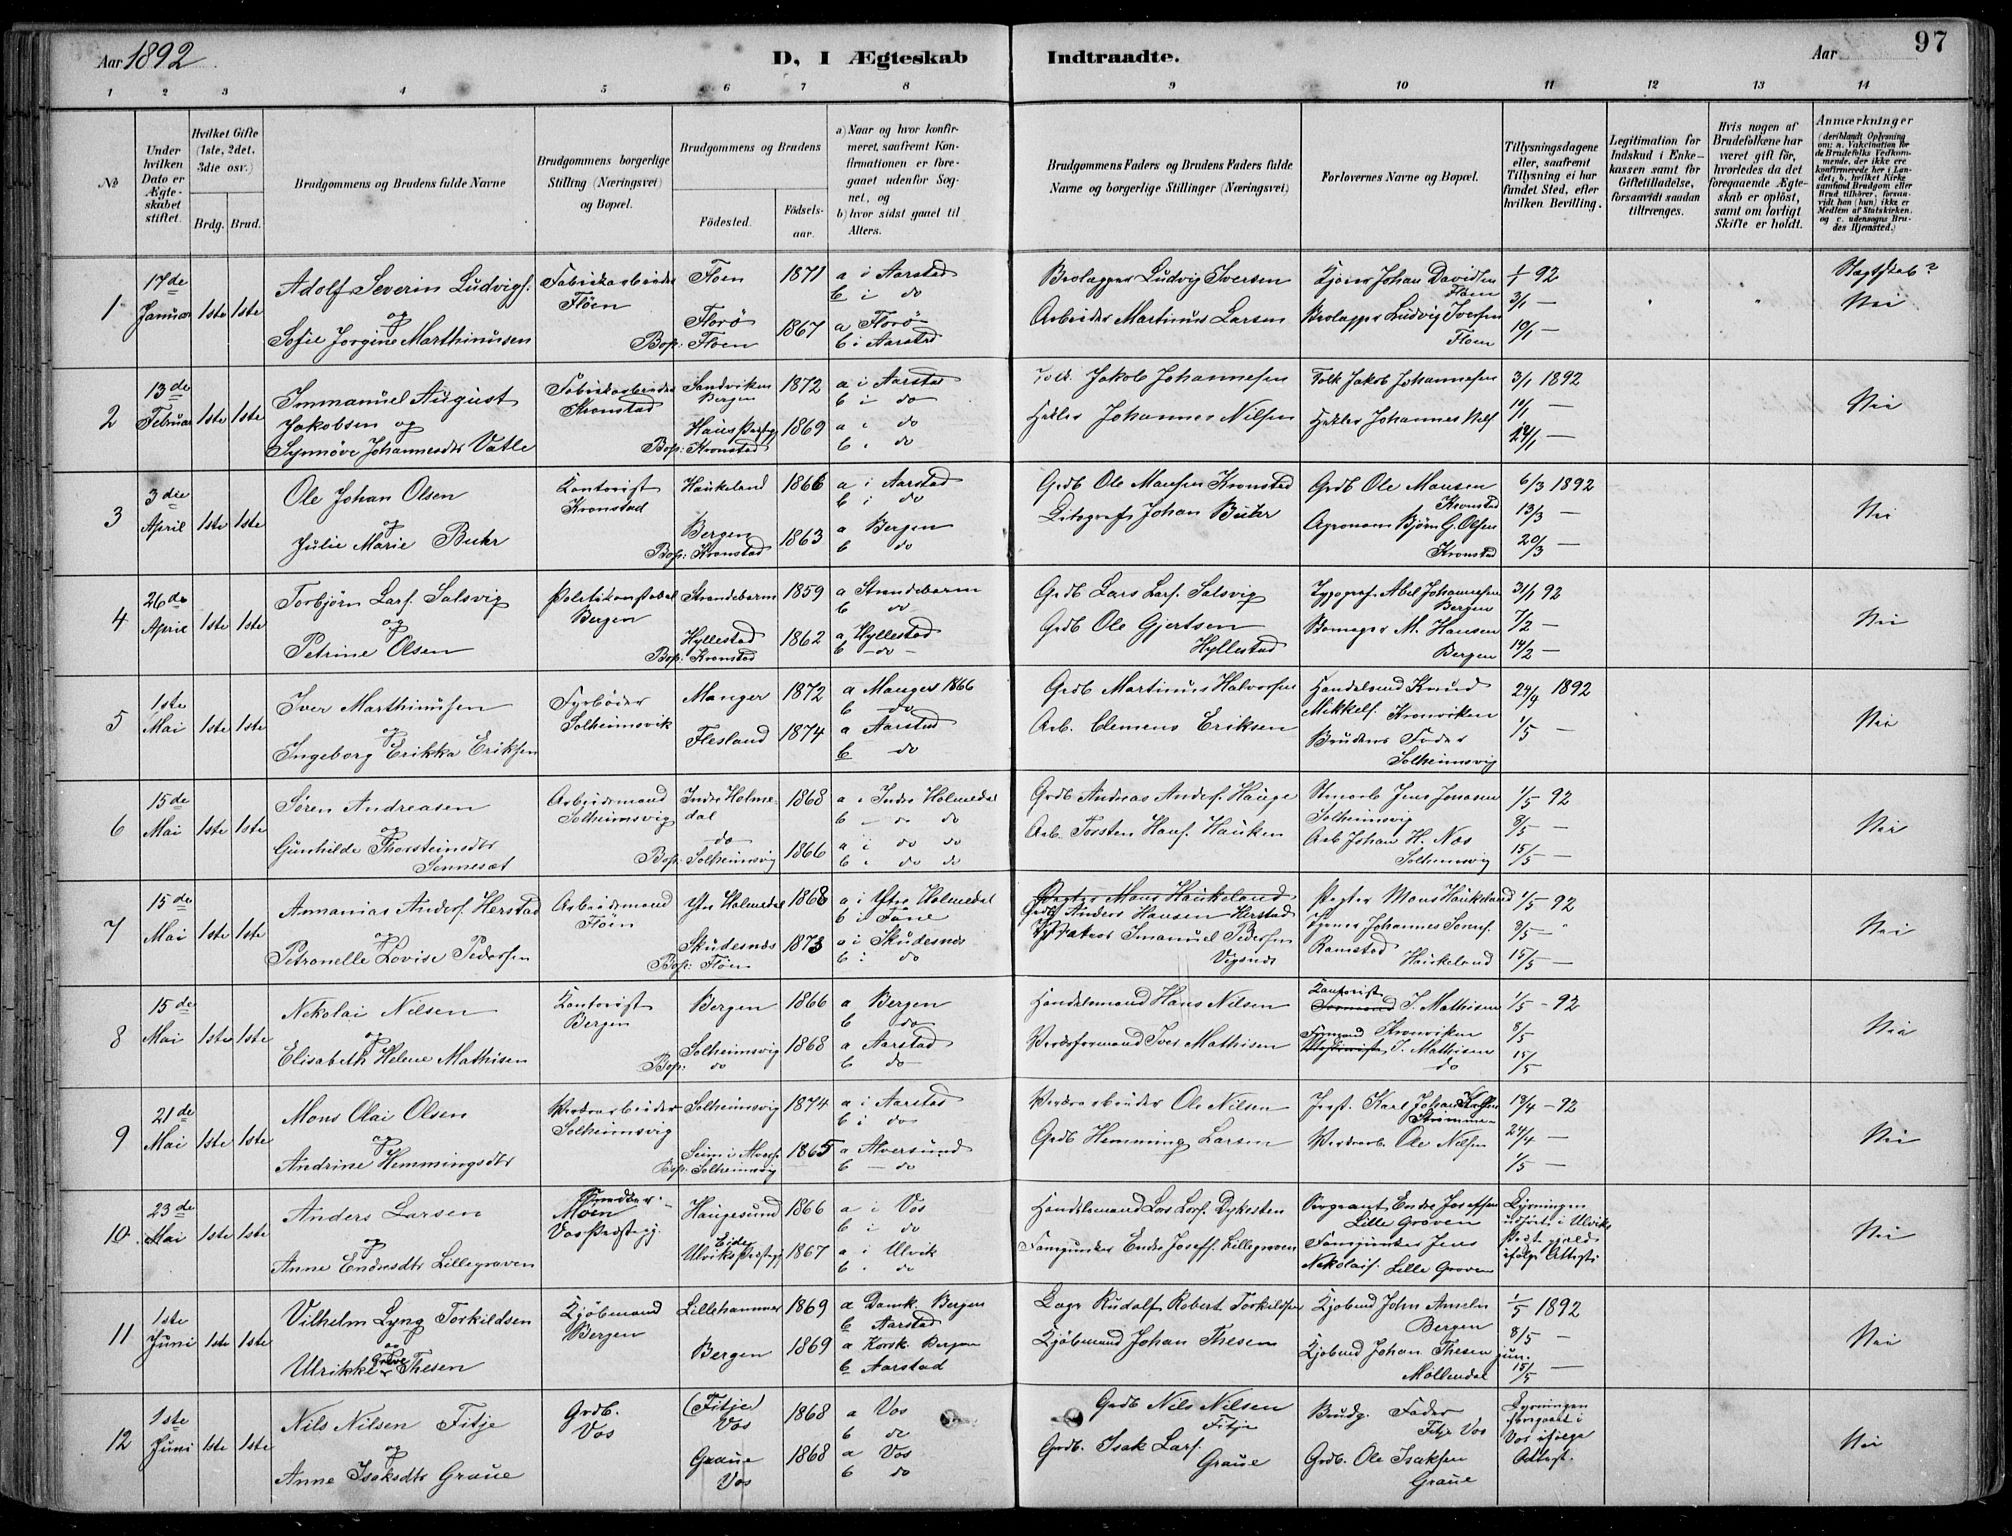 Aar 1892
D, I Ægteskab Indtraadte.
Aar
97
1 2 3 4 5 6 7 8 9 10 11 12 13 14
№
Under hvilken Dato er Ægteskabet stiftet.
Hvilket Gifte (1ste, 2det, 3die osv.)
Brdg. Brud.
Brudgommens og Brudens fulde Navne
Brudgommens borgerlige Stilling (Næringsvei) og Bopæl.
Brudgommens og Brudens
Födested.
Födselsaar.
a) Naar og hvor konfirmeret, saafremt Konfirmationen er foregaaet udenfor Sognet, og
b) hvor sidst gaaet til Alters.
Brudgommens Faders og Brudens Faders fulde Navne og borgerlige Stillinger (Næringsvei)
Forlovernes Navne og Bopæl.
Tillysningsdagene eller, saafremt Tillysning ei har fundet Sted, efter hvilken Bevilling.
Legitimation for Indskud i Enkekassen samt for Giftetilladelse, forsaavidt saadan tiltrænges.
Hvis nogen af Brudefolkene har været gift för, hvorledes da det foregaaende Ægteskab er oplöst, samt om lovligt Skifte er holdt.
Anmærkninger (deriblandt Oplysning om: a. Vakcination for de Brudefolks Vedkommende, der ikke ere konfirmerede her i Landet; b. hvilket Kirkesamfund Brudgom eller Brud tilhører, forsaavidt han (hun) ikke er Medlem af Statskirken, og c. udensogns Brudes Hjemsted.)
1 17de Januar 1ste 1ste
Adolf Severin Ludvigs.
og
Sofie Jorgine Marthinusen
Fabrikarbeider
Flöen
Floen 1871 a i Aarstad
b i do
Florö 1867 a Florö
Bop: Floen b i Aarstad
Brolægger Ludvig Iversen
Arbeider Martinus Larsen
Kjører Johan Davidsen
Floen
Brolægger Ludvig Iversen
Floen
1/1 92
3/1 —
10/1 —
Nei
2 13de Februar 1ste 1ste
Immanuel August
Jakobsen og
Synnøve Johannesdtr Vatle
Fabrikarbeider
Kronstad
Sandviken Bergen 1872 a i Aarstad
b i do
Haus Præstegj 1869 a i do
Bop: Kronstad b i do
Jakob Johannesen
Johannes Nilsen
Jakob Johannesen
Johannes Nils
3/1 1892
10/1 —
24/1 —
Nei
3 3die April 1ste 1ste
Ole Johan Olsen
og
Julie Marie Buhr
Kontorist
Kronstad
Haukeland 1866 a i Aarstad
b i do
Bergen 1863 a Bergen
Bop: Kronstad b do
Grdb Ole Monsen Kronstad
Litograf Johan Buhr
Grdb Ole Monsen
Kronstad
Agronom Bjørn G. Olsen
Kronstad
6/3 1892
13/3 —
20/3 —
Nei
4 26de April 1ste 1ste
Torbjörn Lars. Salsvig
og
Petrine Olsen
Politikonstabel
Bergen
Strandebarm 1859 a Strandebarm
b do
Hyllestad 1862 a Hyllestad
Bop: Kronstad b — do —
Grdb Lars Lars. Salsvig
Grdb Ole Gjertsen
Hyllestad
Typograf Abel Johannesen
Bergen
M. Hansen
Bergen
31/1 92
7/2 —
14/2 —
Nei
5 1ste Mai 1ste 1ste
Iver Marthinusen
og
Ingeborg Erikka Eriksen
Fyrböder
Solheimsvik
Manger 1872 a Manger 1866
b do
Flesland 1874 a Aarstad
b do
Grdb Martinus Halvorsen
Arb. Clemens Eriksen
Handelsmd Knud
Mikkels. Kronviken
Brudens Fader
Solheimsvig
24/4 1892
1/5 —
Nei
6 15de Mai 1ste 1ste
Søren Andreasen
og
Gunhilde Thorsteinsdtr
Sennesæt
Arbeidsmand
Solheimsvig
Indre Holmedal 1868 a i Indre Holmedal
b — do do
do 1866 a i do do
Bop: Solheimsvig b i do do
Grdb Andreas Anders. Hauge
Arb. Torsten Hans. Hauken
Jens Jonasen
Solheimsvig
Arb Johan H. Næs
Solheimsvig
1/5 92
8/5 —
15/5 —
Nei
7 15de Mai 1ste 1ste
Annanias Anders. Herstad
og
Petronelle Lovise Pedersen
Arbeidsmand
Flöen
Ytre Holmedal 1868 a i Ytre Holmedal
b i Fane
Skudesnæs 1873 a i Skudesnæs
Bop: Flöen b i do
Pagter Mons Haukeland
Grdb Anders Hansen Herstad
Imanuel Pedersen
Vigsnæs
Pagter Mons Haukeland
Johannes
Ramstad Haukeland
1/5 92
8/5 —
15/5 —
Nei
8 15de Mai 1ste 1ste
Nekolai Nilsen
og
Elisabeth Helene Mathisen
Kontorist
Bergen
Bergen 1866 a Bergen
b do
Solheimsvig 1868 a Aarstad
Bop: do b do
Handelsmand Hans Nilsen
Værksformand Iver Mathisen
Kontorist
I. Mathisen
Formand Kronviken
I. Mathisen
do
1/5 — 92
8/5
15/5
Nei
9 21de Mai 1ste 1ste
Mons Olai Olsen
og
Andrine Hemmingsdtr
Værksarbeider
Solheimsvig
Solheimsvig 1874 a i Aarstad
b i do
Seim i Alvers. 1865 a Alversund
Bop: Solheimsvig b — do
Værksarbeider Ole Nilsen
Grdb Hemming Larsen
Karl Johan
Værksarb Ole Nilsen
24/4 —
1/5 —
Nei
10. 23de Mai 1ste 1ste
Anders Larsen
og
Anne Endresdtr Lillegraven
Møen
Vos Præstegj.
Haugesund 1866 a i Vos
b i do
Eide
Ulviks Præstegj 1867 a i Ulvik
b i do
Handelsmand Lars Lars. Dykesten
Endre Josefs. Lillegraven
Sergeant Endre Josefsen
Lille Graven
Jens
Nekolais. Lille Graven
Lysningen
udført i Ulviks
Præstegjeld
ifølge Attest
Nei
11 1ste Juni 1ste 1ste
Vilhelm Lyng Torkildsen
og
Ulrikke Grave Thesen
Kjöbmand
Bergen
Lillehammer 1869 a Domk. Bergen
b Aarstad
Bergen 1869 a Korsk. Bergen
b Aarstad
Rudolf Robert Torkildsen
Kjöbmand Johan Thesen
Kjöbmd John Ameln
Bergen
Kjöbmd Johan Thesen jun.
Möllendal
1/5 1892
8/5 —
15/5 —
Nei
12 1ste Juni 1ste 1ste
Nils Nilsen Fitje
og
Anne Isaksdtr Graue
Grdb.
Vos
(Fitje) 1868 a Vos
Vos b do
Graue 1868 a Vos
Vos b do
Grdb Nils Nilsen
Fitje
Grdb. Isak Lars.
Graue
Brudg. Fader
Fitje Vos
Grdb. Ole Isaksen
Graue
Lysningen
foregaaet i
Vos ifølge
Attest.
Nei